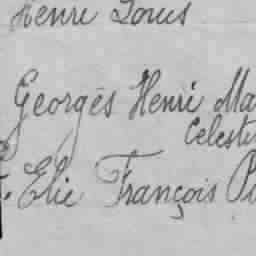 Henri Louis
Georges Henri Ma
Celesti
Elie François